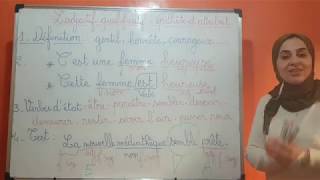 L'adjectif qualificatif épithète et attribut
1. Définition : gentil, honnête, courageux.
2. * C'est une femme heureuse.
* Cette femme est heureuse.
3. Verbes d'état : être, paraître, sembler, devenir,
demeurer, rester, avoir l'air, passer pour
4. Test : La nouvelle médiathèque semble prête.